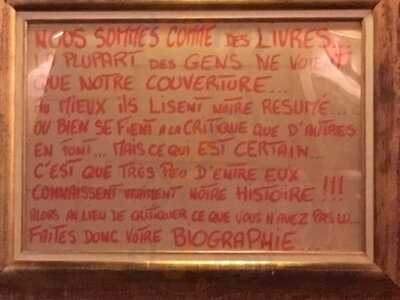 NOUS SOMMES COMME DES LIVRES...
LA PLUPART DES GENS NE VOIENT
QUE NOTRE COUVERTURE...
AU MIEUX ILS LISENT NOTRE RESUMÉ...
OU BIEN SE FIENT A LA CRITIQUE QUE D'AUTRES
EN FONT... MAIS CE QUI EST CERTAIN...
C'EST QUE TRÈS PEU D'ENTRE EUX
CONNAISSENT VRAIMENT NOTRE HISTOIRE !!!
ALORS AU LIEU DE CRITIQUER CE QUE VOUS N'AVEZ PAS LU...
FAITES DONC VOTRE BIOGRAPHIE...